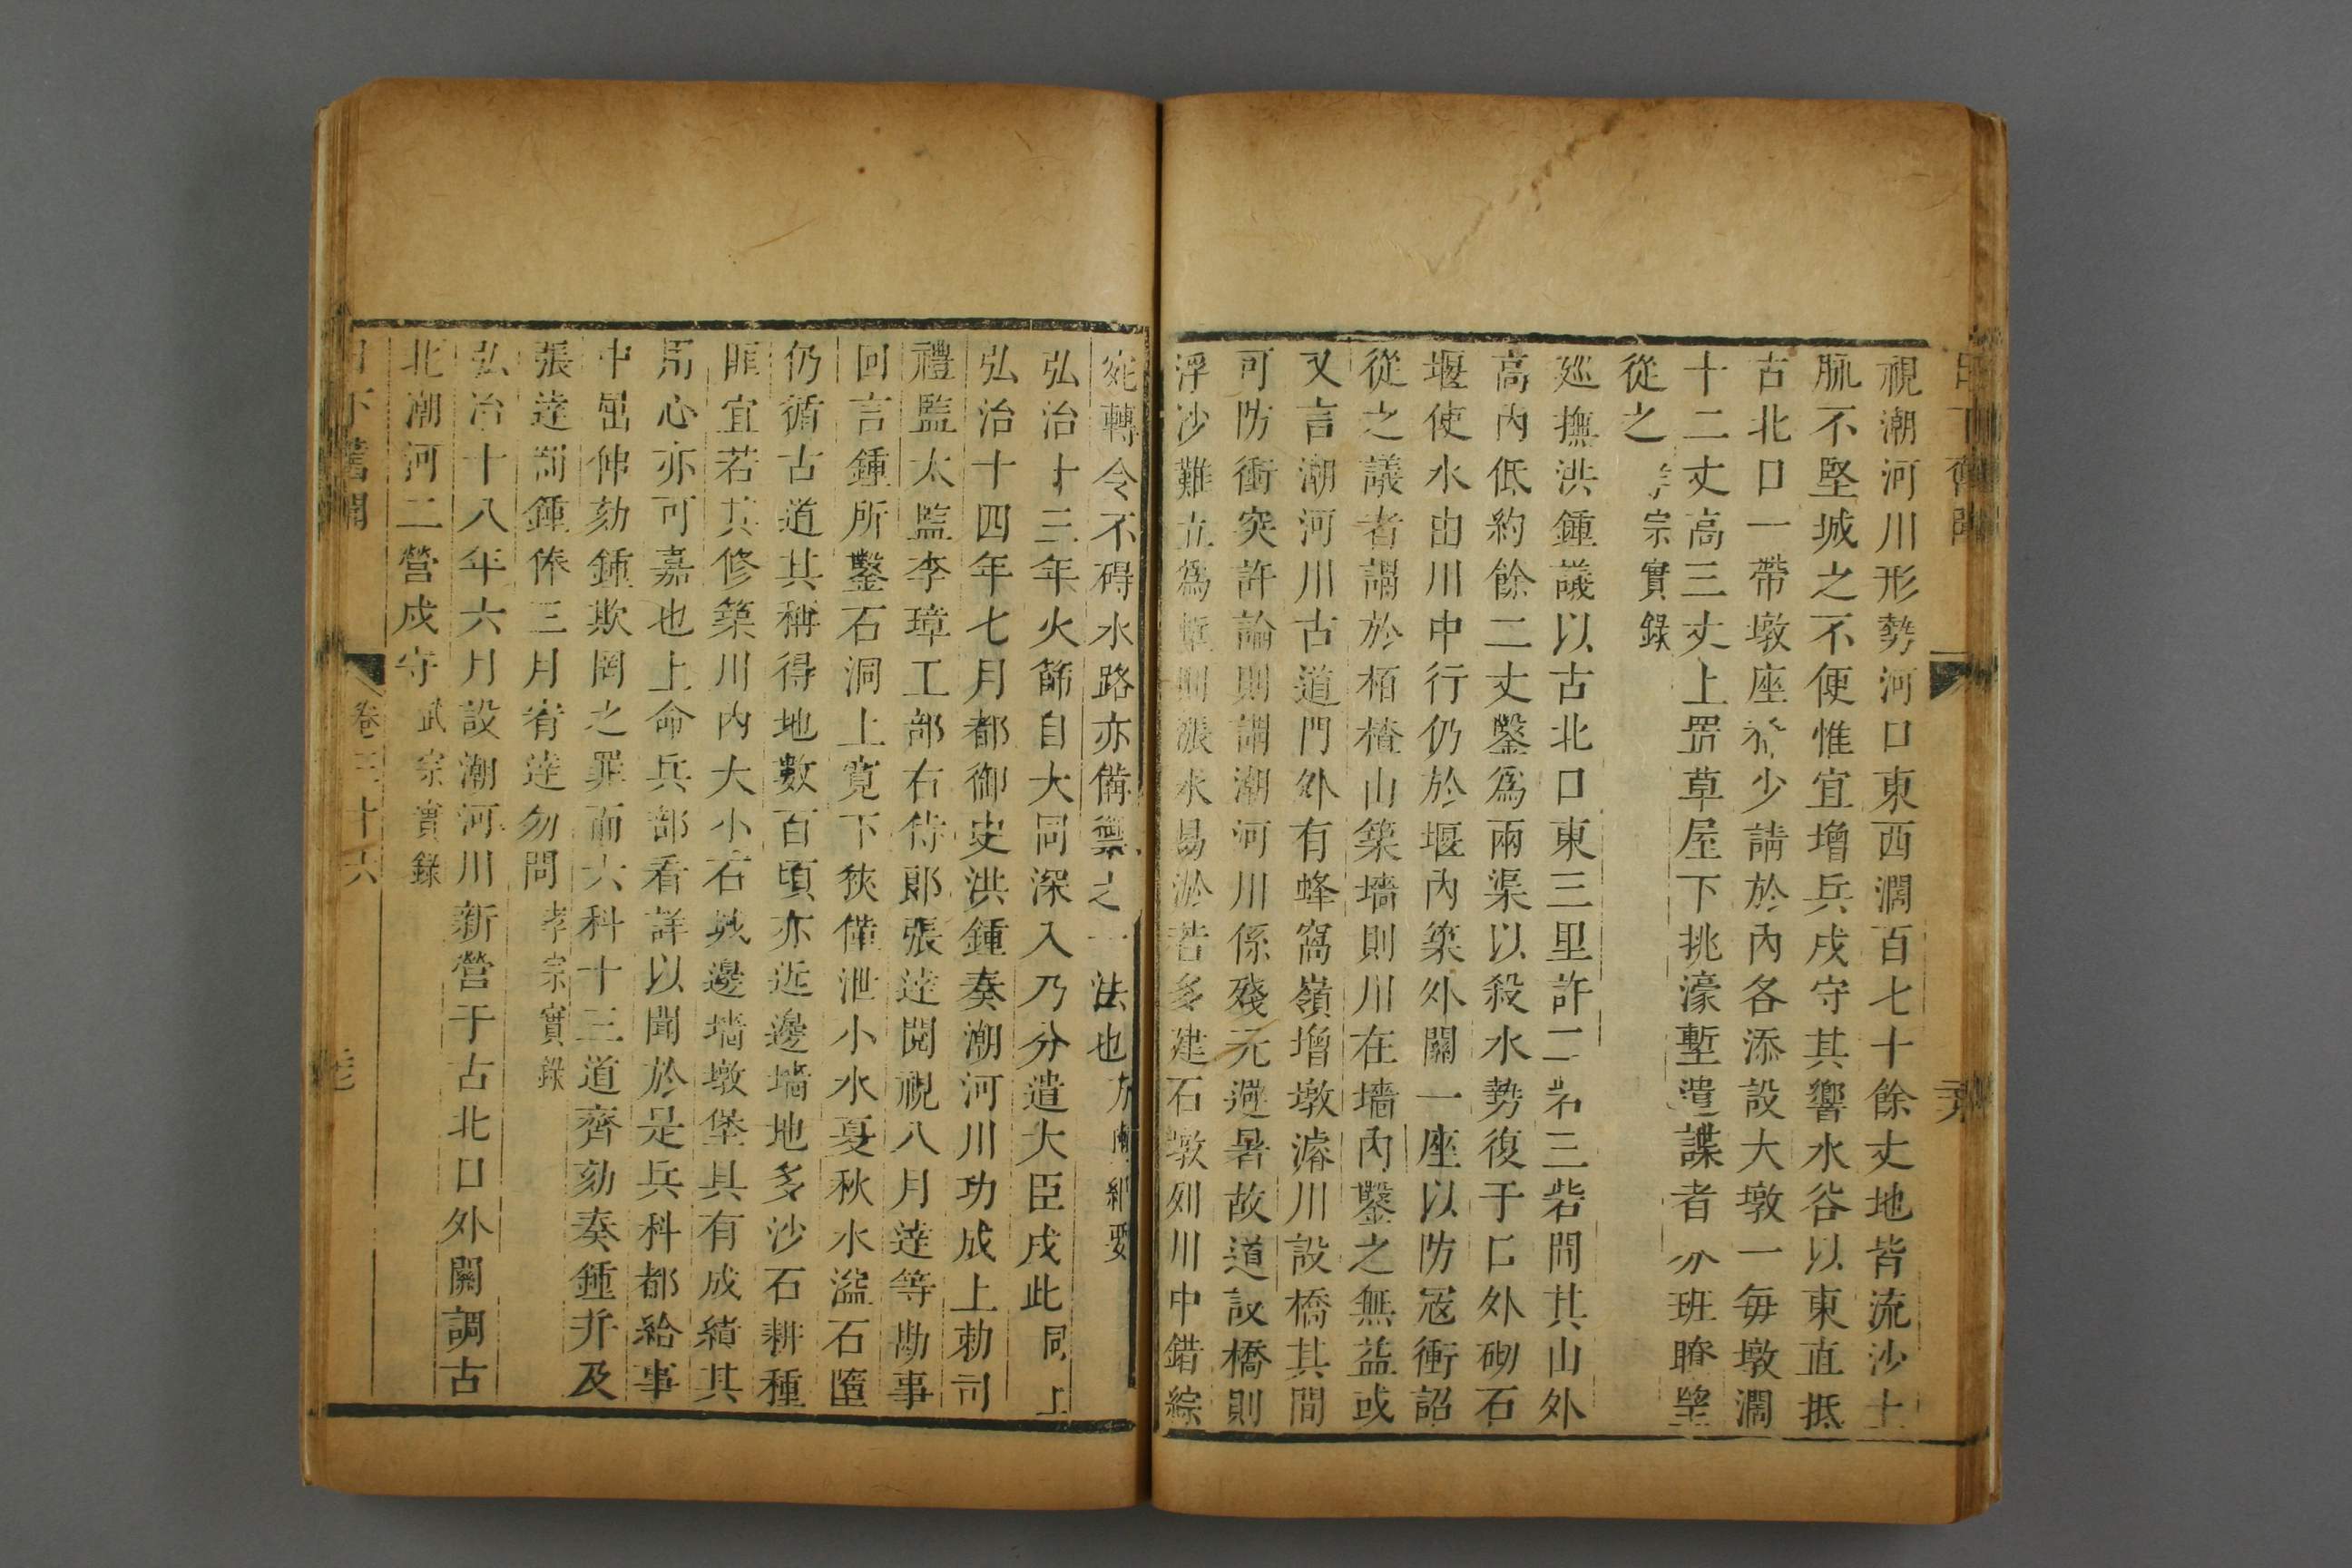 日下舊聞
視潮河川形勢河口東西濶百七十餘丈地皆流沙土
脈不堅城之不便惟宜增兵戍守其響水谷以東直抵
古北口一帶墩座 少請於內各添設大墩一每墩濶
十二丈高三丈上置草屋下挑濠塹遣諜者分班瞭望
從之 宗實錄
廵撫洪鍾議以古北口東三里許 三砦間其山外
高內低約餘二丈鑿爲兩渠以殺水勢復于口外砌石
堰使水由川中行仍於堰內築外關一座以防寇衝詔
從之議者謂於栢楂山築墻則川在墻內鑿之無益或
又言潮河川古道門外有蜂窩嶺增墩濬川設橋其間
可防衝突許論則謂潮河川係殘元避暑故道設橋則
浮沙難立爲塹則漲水易淤若多建石墩列川中錯綜
宛轉令不碍水路亦備禦之一法也方輿紀要
弘治十三年火篩自大同深入乃分遣大臣戍此同上
弘治十四年七月都御史洪鍾奏潮河川功成上勅司
禮監太監李璋工部右侍郎張達閱視八月達等勘事
回言鍾所鑿石洞上寛下狹僅泄小水夏秋水溢石墮
仍循古道其稱得地數百頃亦近邊墻地多沙石耕種
匪宜若其修築川內大小石城邊墻墩堡具有成績其
用心亦可嘉也上命兵部看詳以聞於是兵科都給事
中屈伸劾鍾欺罔之罪而六科十三道齊劾奏鍾并及
張達罰鍾俸三月宥達勿問孝宗實錄
弘治十八年六月設潮河川新營于古北口外關調古
北潮河二營戍守武宗實錄
日下舊聞 卷三十六